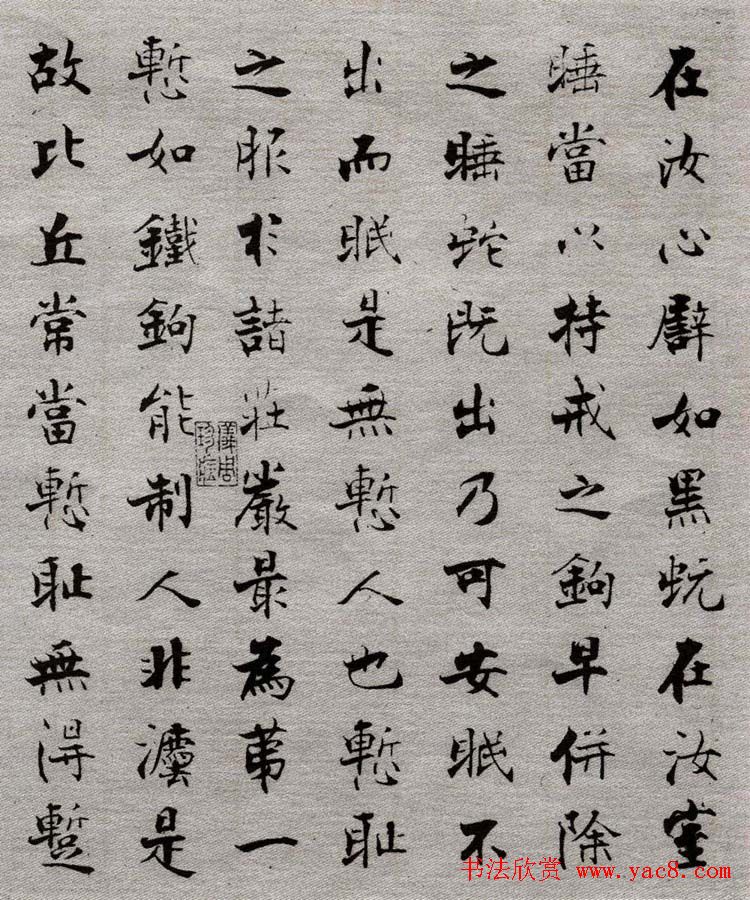 在汝心譬如黑蚖在汝室
睡當以持戒之鉤早併除
之睡蛇既出乃可安眠不
出而眠是無慙人也慙耻
之服於諸莊嚴最為第一
慙如鐵鉤能制人非灋是
故比丘常當慙耻無得暫
书法欣赏 www.yac8.com